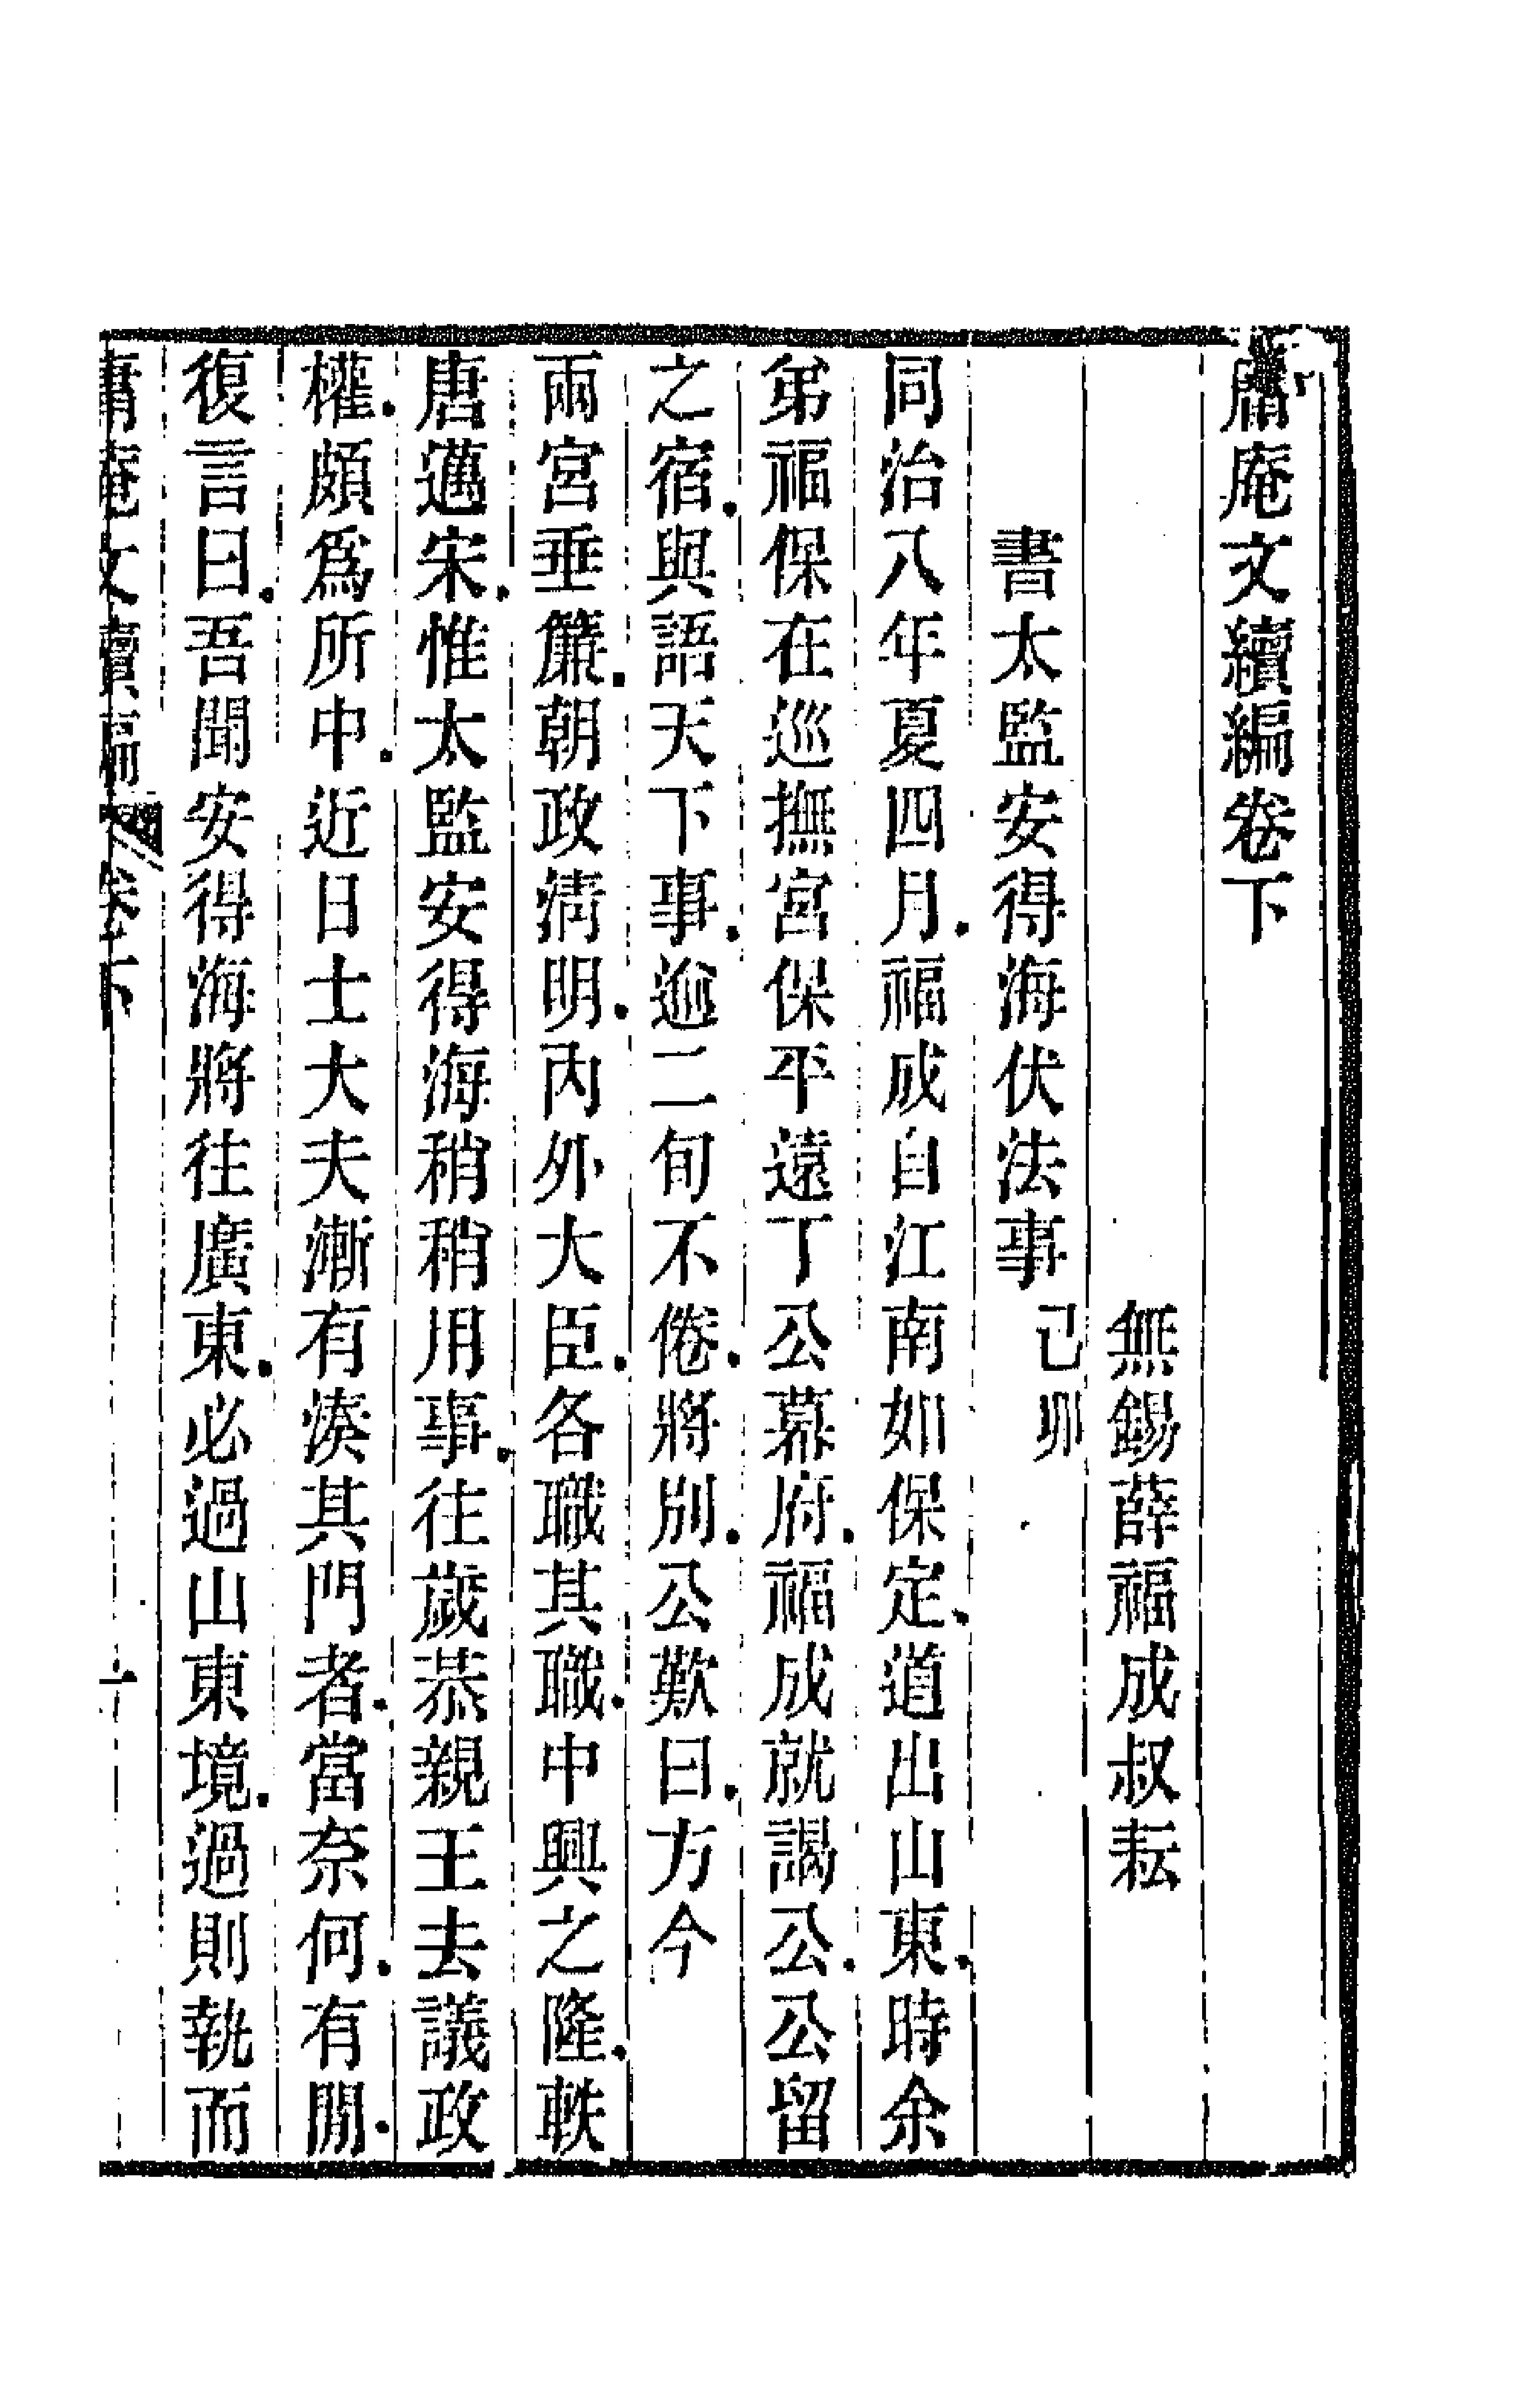 庸庵文續編卷下
無錫薛福成叔耘
書太監安得海伏法事己卯
同治八年夏四月福成自江南如保定道出山東時余
弟福保在巡撫宮保平遠丁公幕府福成就謁公公留
之宿與語天下事逾二旬不倦將別公歎曰方今
兩宮垂簾朝政淸明內外大臣各職其職中興之隆軼
唐邁宋惟太監安得海稍稍用事往歲恭親王去議政
權頗爲所中近日士大夫漸有湊其門者當奈何有閒
復言曰吾聞安得海將往廣東必過山東境過則執而
庸庵文續編 卷下 一